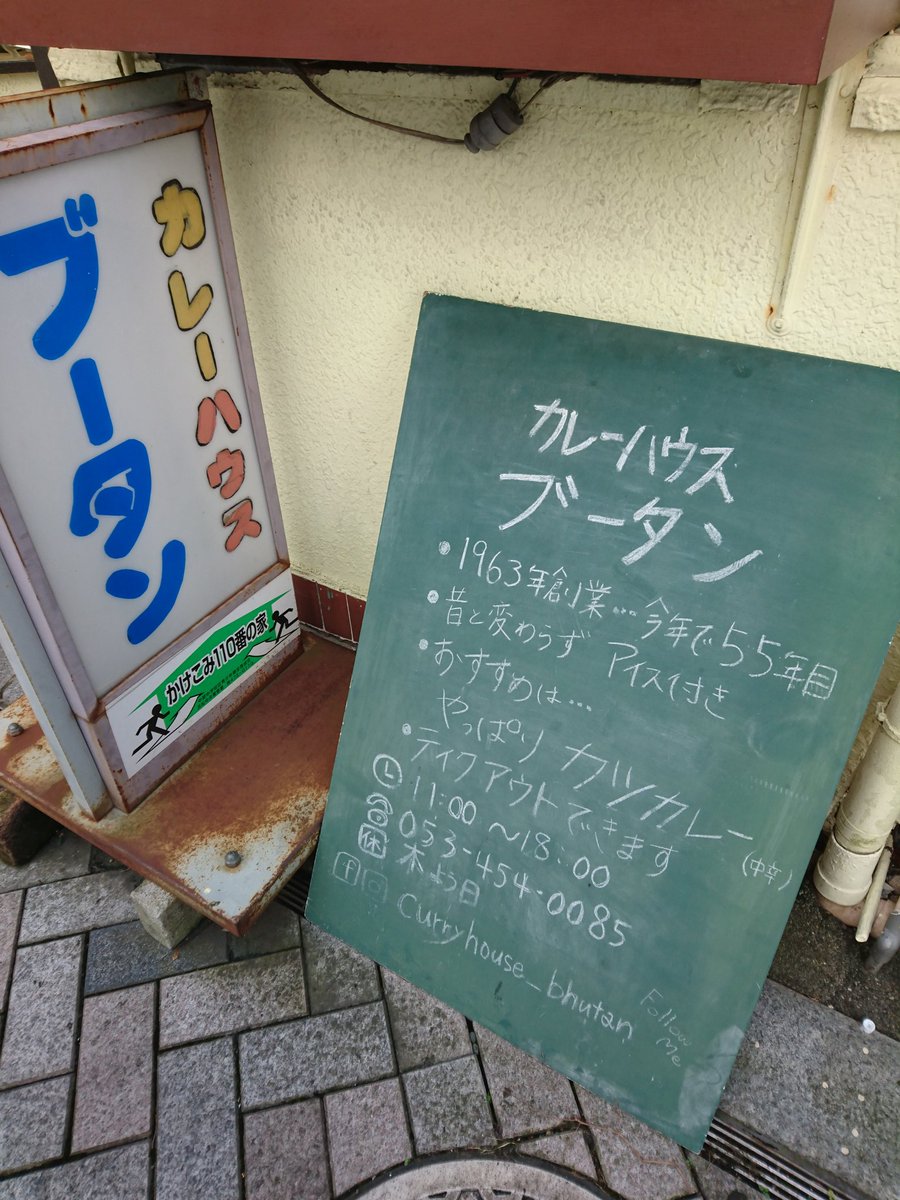 カレーハウス
ブータン
かけこみ110番の家
カレーハウス
ブータン
・1963年創業…今年で55年目
・昔と変わらず アイス付き
・おすすめは…
やっぱり カツカレー(中辛)
・テイクアウトできます
11:00 ~18:00
053-454-0085
休 木よう日
f curryhouse_bhutan
Follow Me